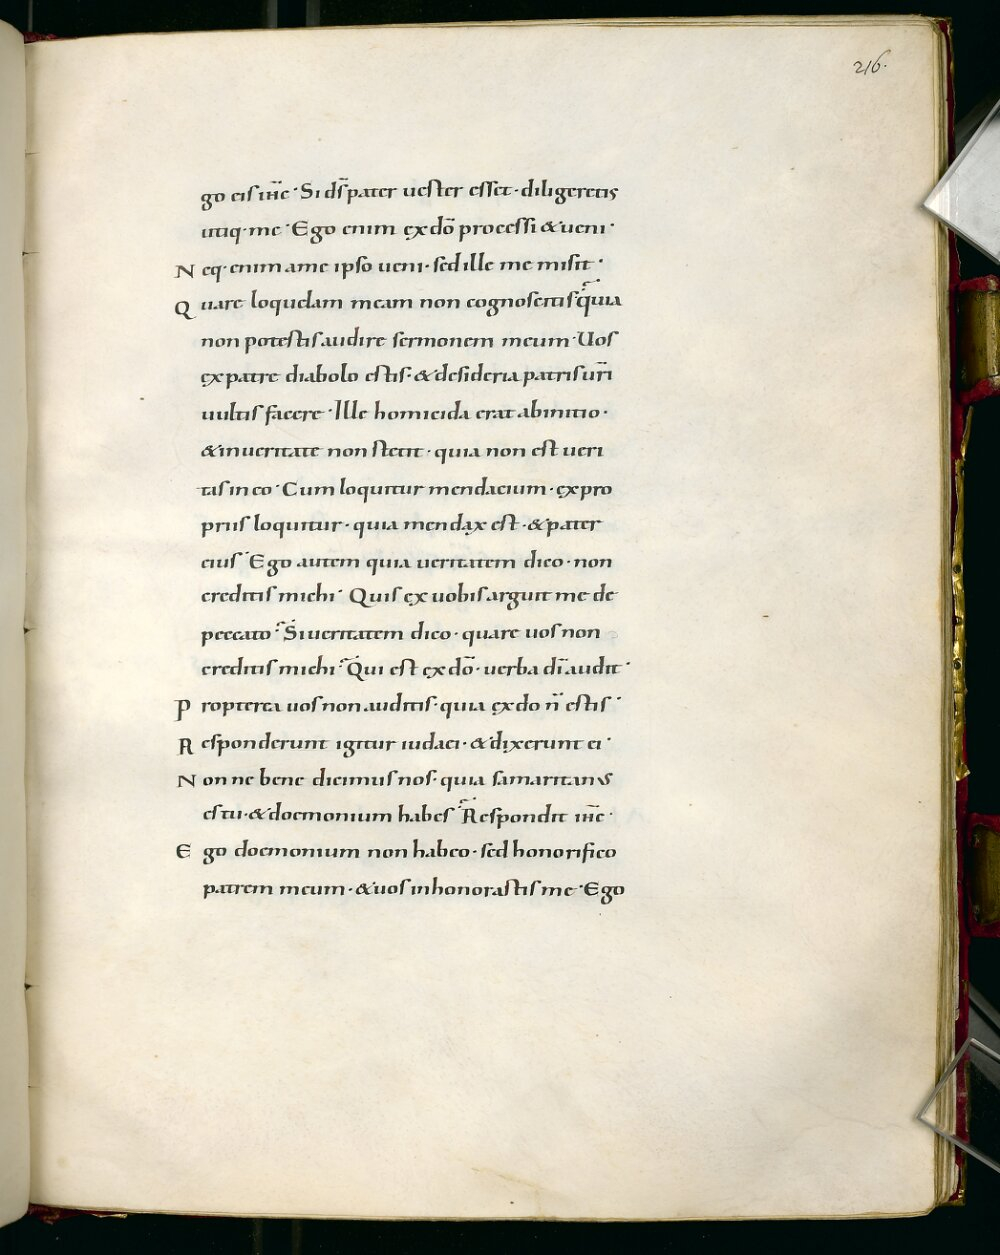 216.
go eis ihc̄· Si ds̄ pater uester esset· diligeretis
utiq· me· Ego enim ex dō processi & ueni·
Neq· enim a me ipso ueni· sed ille me misit·
Quare loquelam meam non cognoscitis? quia
non potestis audire sermonem meum· Uos
ex patre diabolo estis· & desideria patris ur̄i
uultis facere· Ille homicida erat ab initio·
& in ueritate non stetit· quia non est ueri
tas in eo· Cum loquitur mendacium· ex pro
priis loquitur· quia mendax est· & pater
eius· Ego autem quia ueritatem dico· non
creditis michi· Quis ex uobis arguit me de
peccato? Si ueritatem dico· quare uos non
creditis michi? Qui est ex dō· uerba dī audit·
Propterea uos non auditis· quia ex do n̄ estis·
Responderunt igitur iudaei· & dixerunt ei·
Nonne bene dicimus nos· quia samaritanus
es tu· & doemonium habes? Respondit ihc̄·
Ego doemonium non habeo· sed honorifico
patrem meum· & uos inhonorastis me· Ego